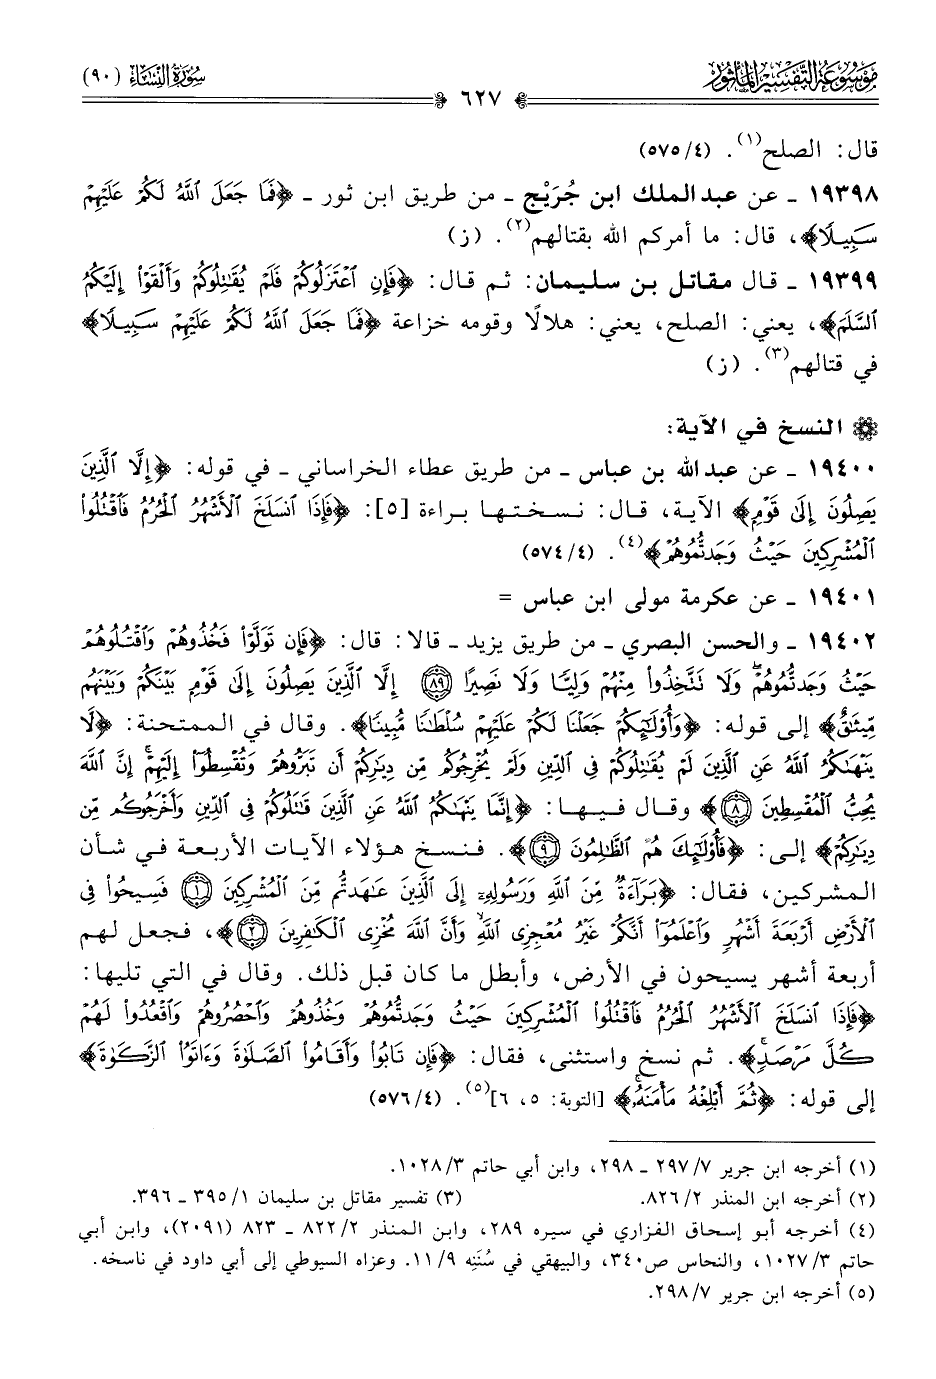 موسوعة التفسير المأثور
سورة النساء (٩٠)
٦٢٧
قال: الصلح(١). (٤/ ٥٧٥)
١٩٣٩٨ ـ عن عبد الملك ابن جُرَيْج ـ من طريق ابن ثور ـ ﴿فَمَا جَعَلَ ٱللَّهُ لَكُمۡ عَلَيۡهِمۡ
سَبِيلًا﴾، قال: ما أمركم الله بقتالهم(٢). (ز)
١٩٣٩٩ ـ قال مقاتل بن سليمان: ثم قال: ﴿فَإِنِ ٱعۡتَزَلُوكُمۡ فَلَمۡ يُقَٰتِلُوكُمۡ وَأَلۡقَوۡاْ إِلَيۡكُمُ
ٱلسَّلَمَ﴾، يعني: الصلح، يعني: هلالًا وقومه خزاعة ﴿فَمَا جَعَلَ ٱللَّهُ لَكُمۡ عَلَيۡهِمۡ سَبِيلًا﴾
في قتالهم(٣). (ز)
النسخ في الآية:
١٩٤٠٠ ـ عن عبد الله بن عباس ـ من طريق عطاء الخراساني ـ في قوله: ﴿إِلَّا ٱلَّذِينَ
يَصِلُونَ إِلَىٰ قَوۡمِۭ﴾ الآية، قال: نسختها براءة [٥]: ﴿فَإِذَا ٱنسَلَخَ ٱلۡأَشۡهُرُ ٱلۡحُرُمُ فَٱقۡتُلُواْ
ٱلۡمُشۡرِكِينَ حَيۡثُ وَجَدتُّمُوهُمۡ﴾(٤). (٤/ ٥٧٤)
١٩٤٠١ ـ عن عكرمة مولى ابن عباس =
١٩٤٠٢ ـ والحسن البصري ـ من طريق يزيد ـ قالا: قال: ﴿فَإِن تَوَلَّوۡاْ فَخُذُوهُمۡ وَٱقۡتُلُوهُمۡ
حَيۡثُ وَجَدتُّمُوهُمۡۖ وَلَا تَتَّخِذُواْ مِنۡهُمۡ وَلِيّٗا وَلَا نَصِيرًا ٨٩ إِلَّا ٱلَّذِينَ يَصِلُونَ إِلَىٰ قَوۡمِۭ بَيۡنَكُمۡ وَبَيۡنَهُم
مِّيثَٰقٌ﴾ إلى قوله: ﴿وَأُوْلَٰٓئِكُمۡ جَعَلۡنَا لَكُمۡ عَلَيۡهِمۡ سُلۡطَٰنٗا مُّبِينٗا﴾. وقال في الممتحنة: ﴿لَّا
يَنۡهَىٰكُمُ ٱللَّهُ عَنِ ٱلَّذِينَ لَمۡ يُقَٰتِلُوكُمۡ فِي ٱلدِّينِ وَلَمۡ يُخۡرِجُوكُم مِّن دِيَٰرِكُمۡ أَن تَبَرُّوهُمۡ وَتُقۡسِطُوٓاْ إِلَيۡهِمۡۚ إِنَّ ٱللَّهَ
يُحِبُّ ٱلۡمُقۡسِطِينَ ٨﴾ وقال فيها: ﴿إِنَّمَا يَنۡهَىٰكُمُ ٱللَّهُ عَنِ ٱلَّذِينَ قَٰتَلُوكُمۡ فِي ٱلدِّينِ وَأَخۡرَجُوكُم مِّن
دِيَٰرِكُمۡ﴾ إلى: ﴿فَأُوْلَٰٓئِكَ هُمُ ٱلظَّٰلِمُونَ ٩﴾. فنسخ هؤلاء الآيات الأربعة في شأن
المشركين، فقال: ﴿بَرَآءَةٞ مِّنَ ٱللَّهِ وَرَسُولِهِۦٓ إِلَى ٱلَّذِينَ عَٰهَدتُّم مِّنَ ٱلۡمُشۡرِكِينَ ١ فَسِيحُواْ فِي
ٱلۡأَرۡضِ أَرۡبَعَةَ أَشۡهُرٖ وَٱعۡلَمُوٓاْ أَنَّكُمۡ غَيۡرُ مُعۡجِزِي ٱللَّهِ وَأَنَّ ٱللَّهَ مُخۡزِي ٱلۡكَٰفِرِينَ ٢﴾، فجعل لهم
أربعة أشهر يسيحون في الأرض، وأبطل ما كان قبل ذلك. وقال في التي تليها:
﴿فَإِذَا ٱنسَلَخَ ٱلۡأَشۡهُرُ ٱلۡحُرُمُ فَٱقۡتُلُواْ ٱلۡمُشۡرِكِينَ حَيۡثُ وَجَدتُّمُوهُمۡ وَخُذُوهُمۡ وَٱحۡصُرُوهُمۡ وَٱقۡعُدُواْ لَهُمۡ
كُلَّ مَرۡصَدٖۚ﴾. ثم نسخ واستثنى، فقال: ﴿فَإِن تَابُواْ وَأَقَامُواْ ٱلصَّلَوٰةَ وَءَاتَوُاْ ٱلزَّكَوٰةَ﴾
إلى قوله: ﴿ثُمَّ أَبۡلِغۡهُ مَأۡمَنَهُۥۚ﴾ [التوبة: ٥، ٦](٥). (٤/ ٥٧٦)
(١) أخرجه ابن جرير ٧/ ٢٩٧ ـ ٢٩٨، وابن أبي حاتم ٣/ ١٠٢٨.
(٢) أخرجه ابن المنذر ٢/ ٨٢٦. (٣) تفسير مقاتل بن سليمان ١/ ٣٩٥ ـ ٣٩٦.
(٤) أخرجه أبو إسحاق الفزاري في سيره ٢٨٩، وابن المنذر ٢/ ٨٢٢ ـ ٨٢٣ (٢٠٩١)، وابن أبي
حاتم ٣/ ١٠٢٧، والنحاس ص٣٤٠، والبيهقي في سُنَنِه ٩/ ١١. وعزاه السيوطي إلى أبي داود في ناسخه.
(٥) أخرجه ابن جرير ٧/ ٢٩٨.